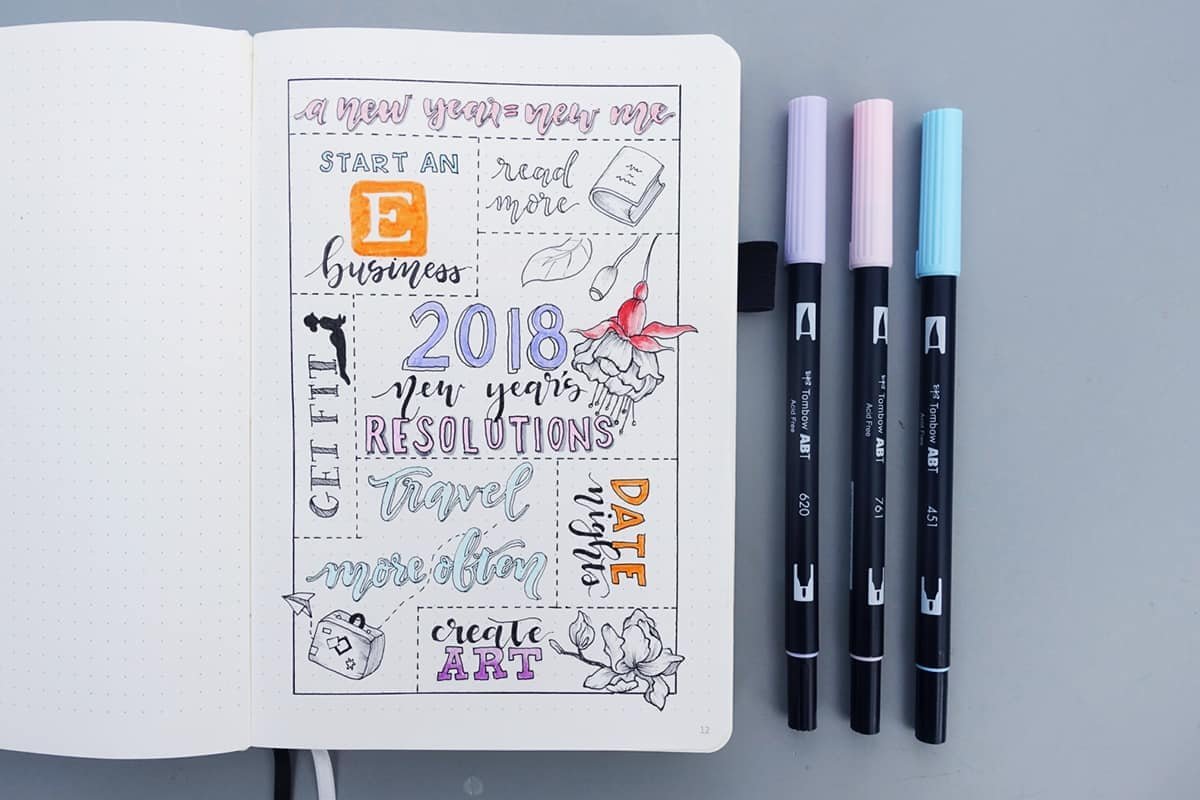 a new year = new me
START AN
E
business
read
more
2018
new year's
RESOLUTIONS
GET FIT
travel
more often
DATE
nights
create
ART
12
Tombow ABT
Acid Free
620
Tombow ABT
Acid Free
761
Tombow ABT
Acid Free
451